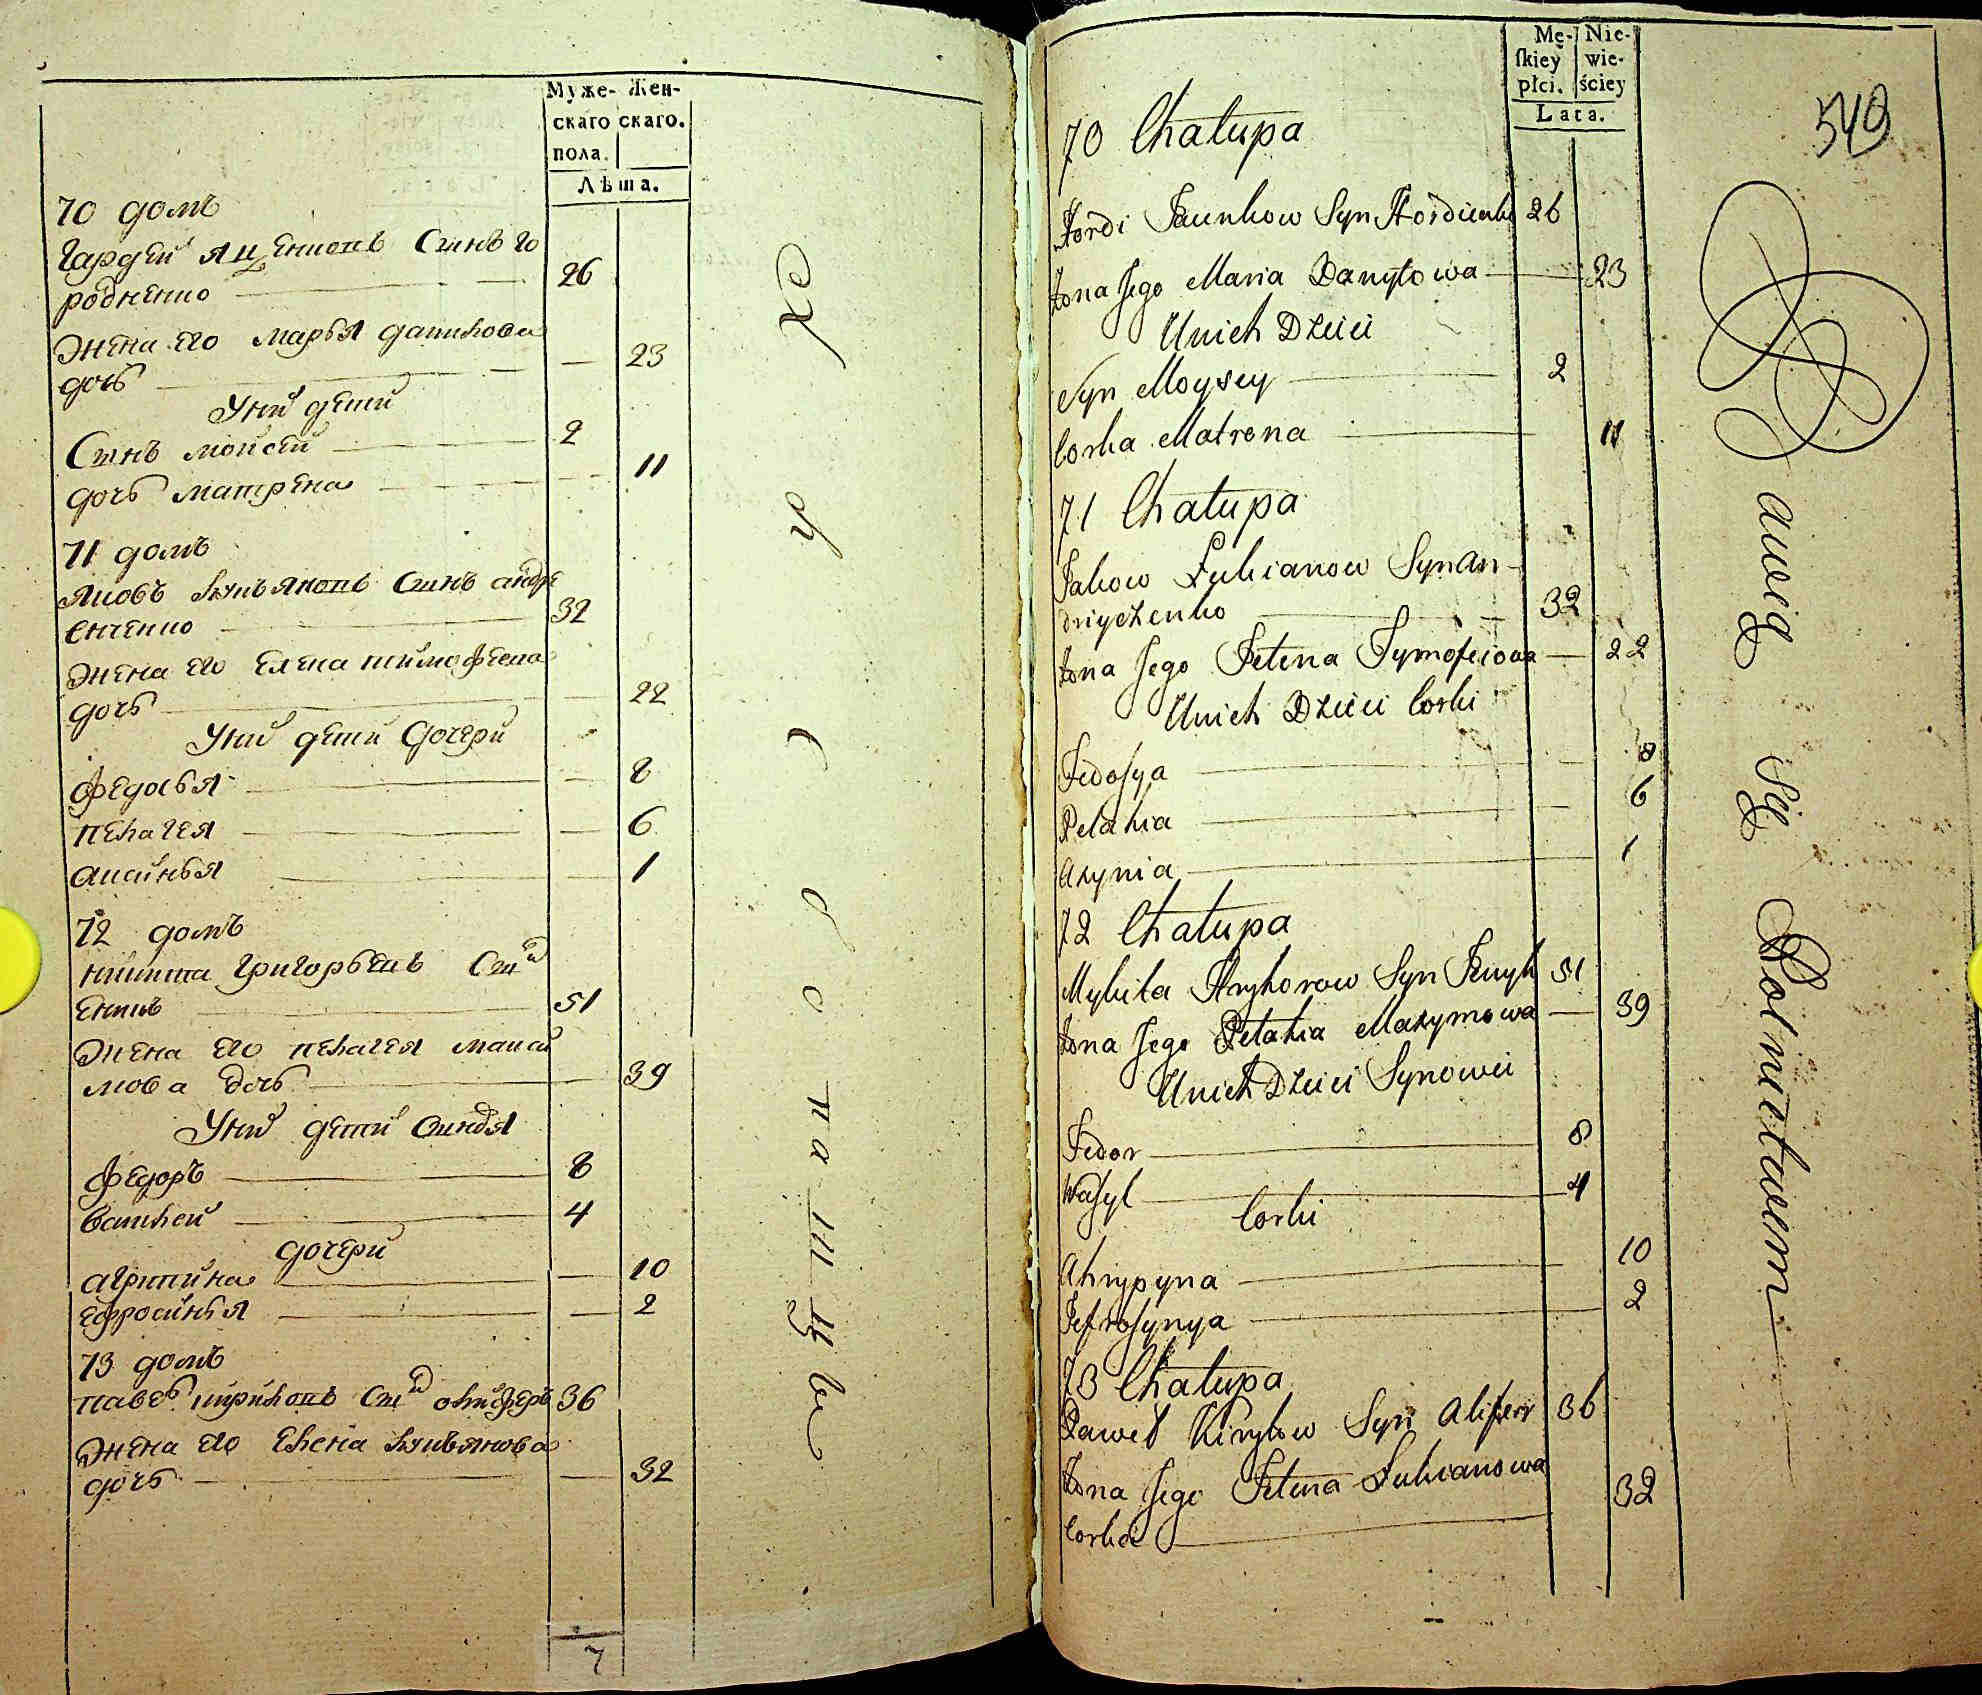 Муже- Жен-
скаго скаго.
пола.
Лѣта.
70 домъ
Гардей Яценковъ Сынъ го
родненко 26
Жена его марья данилова
дочь 23
У них дети
Сынъ мойсей 2
дочь матрена 11
71 домъ
Яковъ лукьяновъ Сынъ андре
енченко 32
Жена его Елена тимофеева
дочь 22
У них дети дочери
федосья 8
пелагея 6
аксинья 1
72 домъ
никита григорьевъ Сын
51
Жена его пелагея макси
мова дочь 39
У них дети сыновья
федоръ 8
василей 4
дочери
агрипина 10
ефросинья 2
73 домъ
павелъ кириловъ Сын олифер 36
Жена его Елена лукьянова
дочь 32
7
Mę- Nie-
ſkiey wie-
płci. ściey
Lata.
549
70 Chałupa
Hordi Jacunkow Syn Hordienko 26
Żona Jego Maria Danyłowa 23
Unich Dzieci
Syn Moysey 2
Corka Matrona 11
71 Chałupa
Jakow Łukianow Syn An-
dryczenko 32
Żona Jego Jelena Tymofeiowa 22
Unich Dzieci Corki
Fedoſya 8
Pelahia 6
Axynia 1
72 Chałupa
Mykita Hryhorow Syn 51
Żona Jego Pelahia Maxymowa 39
Unich Dzieci Synowei
Fedor 8
Waſyl 4
Corki
Ahrypyna 10
Jefroſynya 2
73 Chałupa
Paweł Kiryłow Syn Alifer 36
Żona Jego Jelena Łukianowa
Corka 32